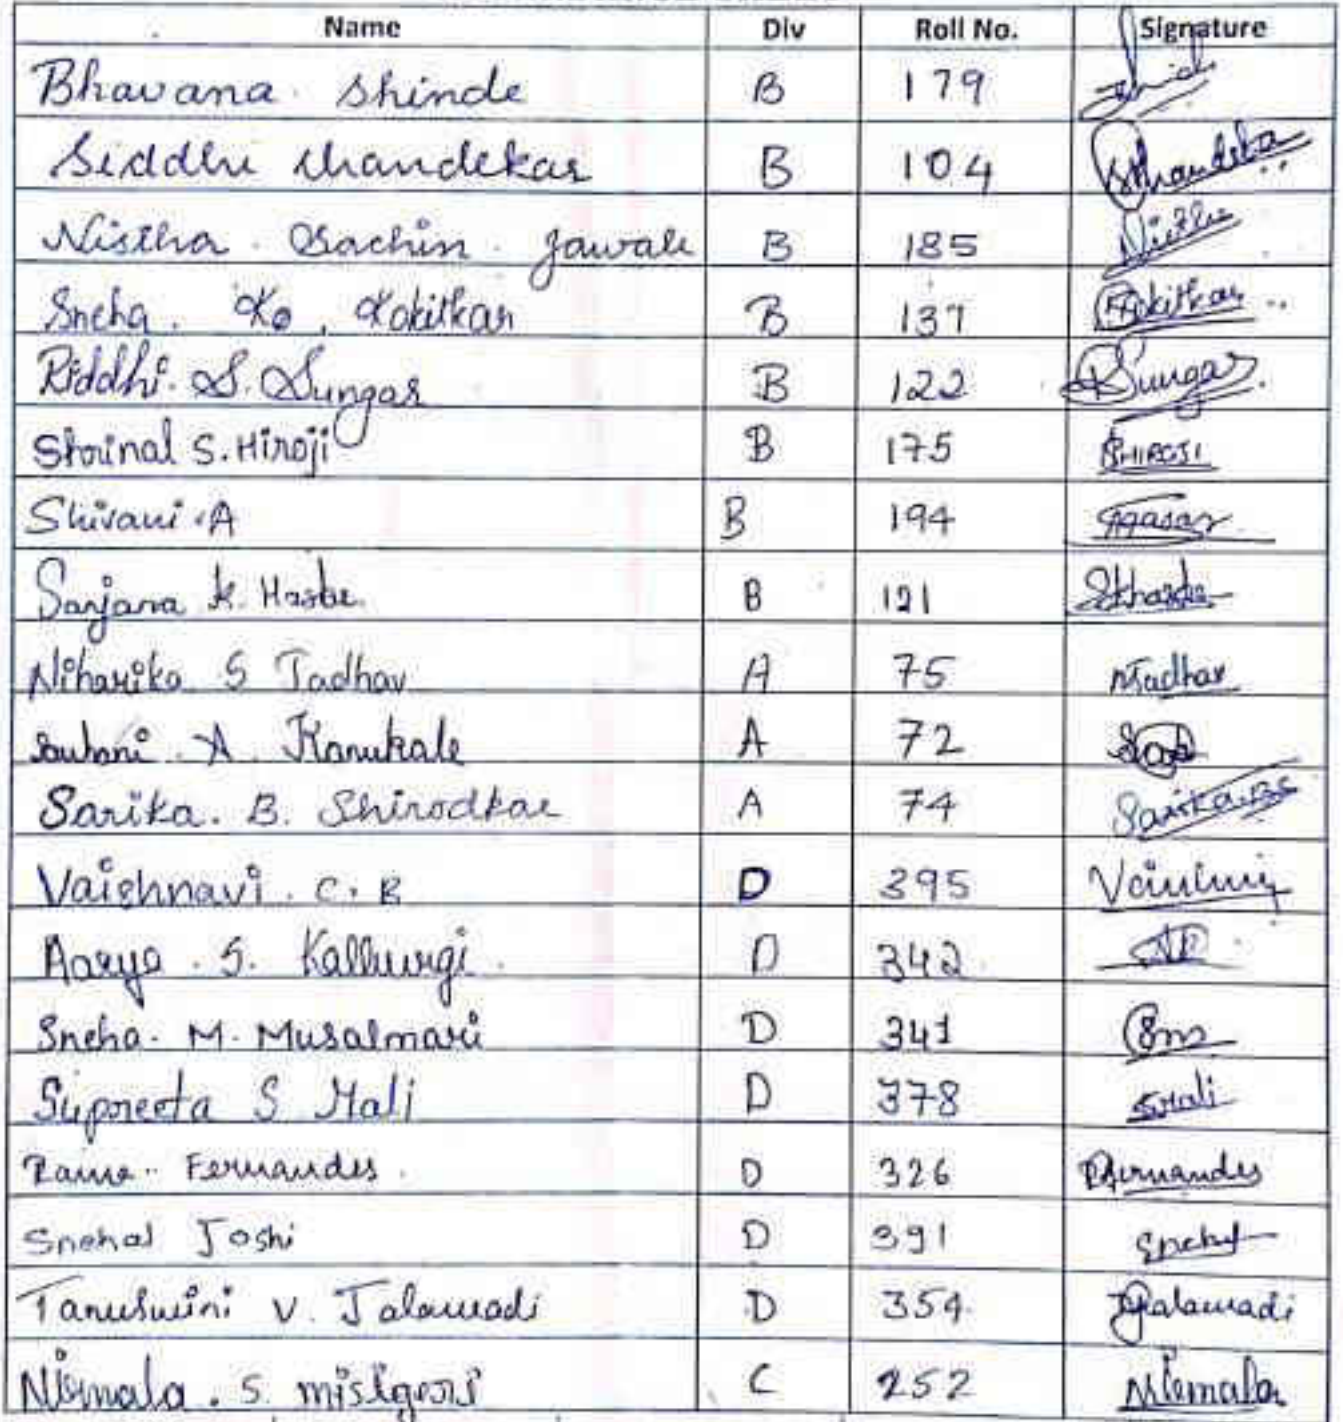 Name Div Roll No. Signature
Bhavana Shinde B 179
Siddhi Chandekar B 104
Nistha Sachin Jawale B 185
Sneha. K. Kokitkar B 137 Kokitkar
Riddhi. S. Sungar B 122 Sungar
Shrinal S. Hiroji B 175 SHIROJI
Shivani A B 194
Sanjana K. Hasbe B 121
Niharika S Jadhav A 75 NJadhav
A. Kanukale A 72
Sarika. B. Shirodkar A 74 Sarika.
Vaishnavi. C. B D 395
Aarya. S. Kallurgi D 342
Sneha. M. Musalmari D 341
Supreeta S Mali D 378 SMali
Fernandes D 326 RFernandes
Snehal Joshi D 391
V. Jalawadi D 354 Jalawadi
Nirmala. S. misigeri C 252 Nirmala